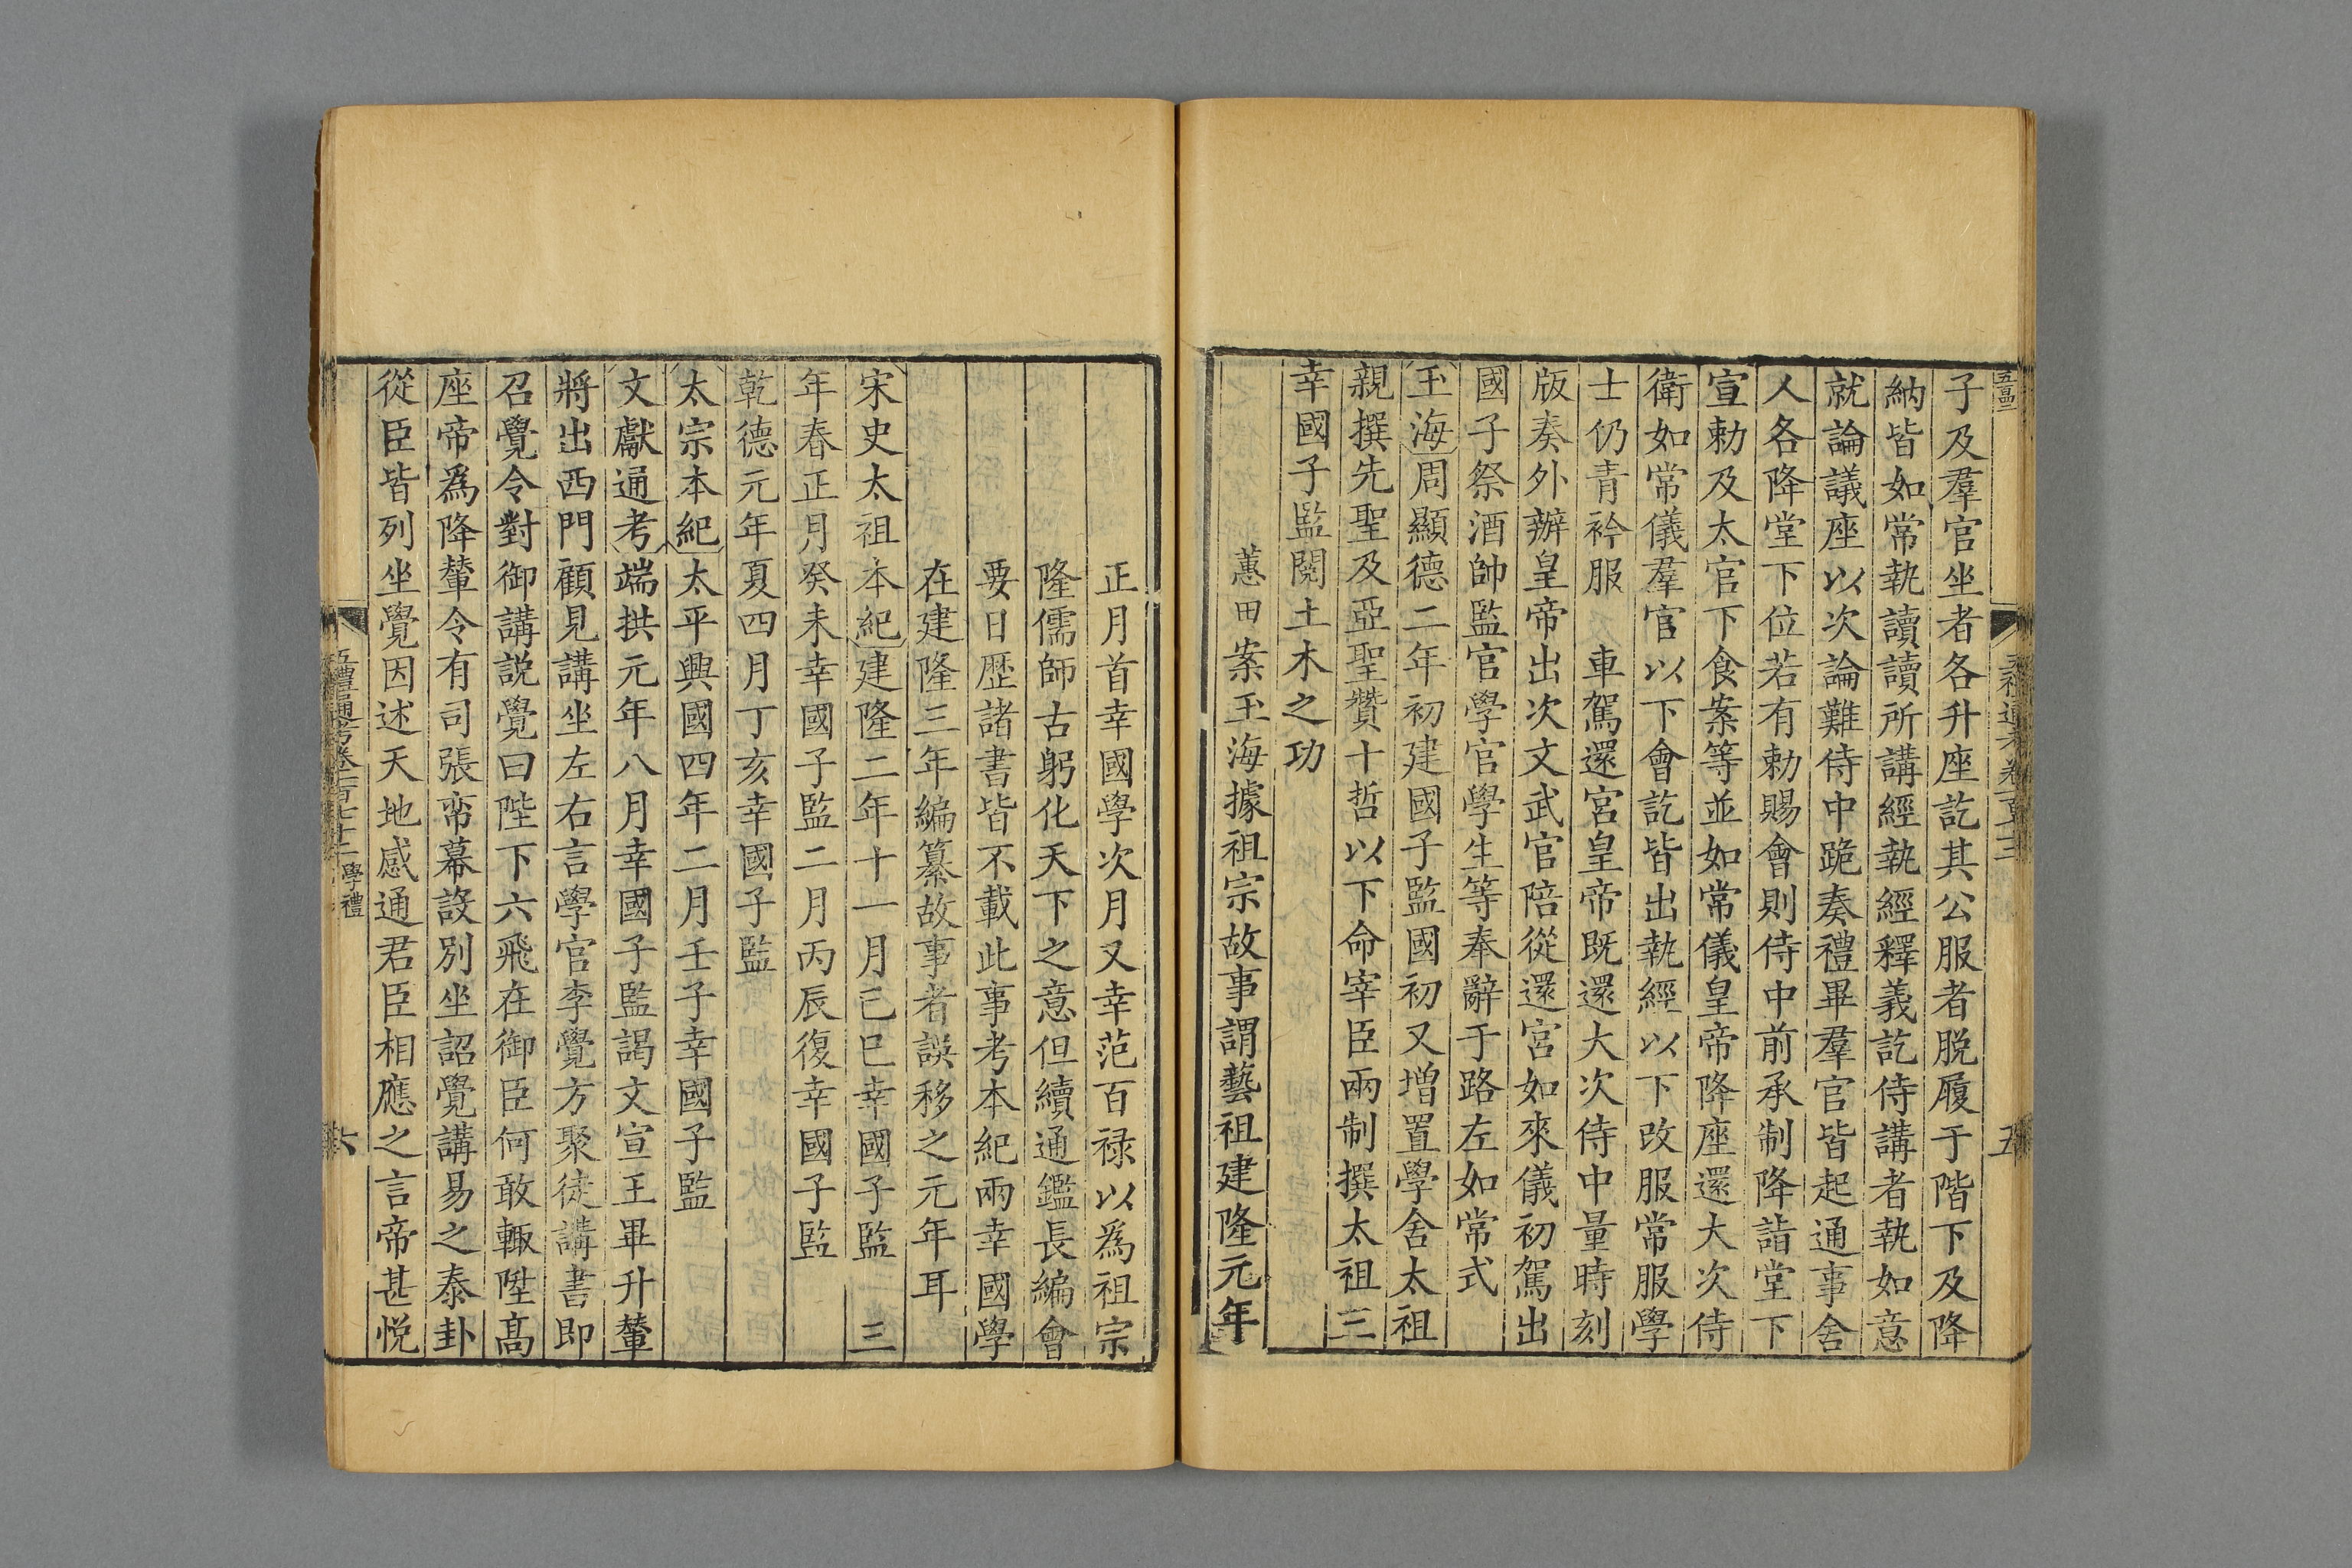 子及羣官坐者各升座訖其公服者脫履于階下及降
納皆如常執讀讀所講經執經釋義訖侍講者執如意
就論議座以次論難侍中跪奏禮畢羣官皆起通事舍
人各降堂下位若有勅賜會則侍中前承制降詣堂下
宣勅及太官下食案等並如常儀皇帝降座還大次侍
衛如常儀羣官以下會訖皆出執經以下改服常服學
士仍青衿服 車駕還宮皇帝既還大次侍中量時刻
版奏外辦皇帝出次文武官陪從還宮如來儀初駕出
國子祭酒帥監官學官學生等奉辭于路左如常式
玉海周顯德二年初建國子監國初又增置學舍太祖
親撰先聖及亞聖贊十哲以下命宰臣兩制撰太祖三
幸國子監閱土木之功
蕙田案玉海據祖宗故事謂藝祖建隆元年
正月首幸國學次月又幸范百禄以爲祖宗
隆儒師古躬化天下之意但續通鑑長編會
要日歷諸書皆不載此事考本紀兩幸國學
在建隆三年編纂故事者誤移之元年耳
宋史太祖本紀建隆二年十一月己巳幸國子監 三
年春正月癸未幸國子監二月丙辰復幸國子監
乾德元年夏四月丁亥幸國子監
太宗本紀太平興國四年二月壬子幸國子監
文獻通考端拱元年八月幸國子監謁文宣王畢升輦
將出西門顧見講坐左右言學官李覺方聚徒講書即
召覺令對御講説覺曰陛下六飛在御臣何敢輒陞髙
座帝爲降輦令有司張帟幕設別坐詔覺講易之泰卦
從臣皆列坐覺因述天地感通君臣相應之言帝甚悅
五禮通考卷一百七十二 學禮
六